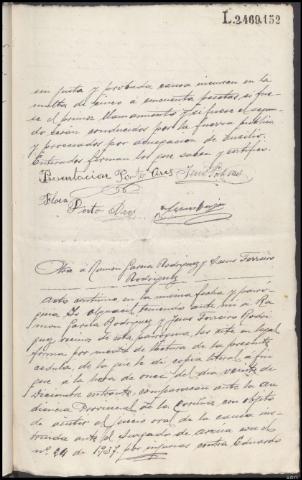 L.2469.152
sin justa y probada causa incurren en la
multa de cinco a cincuenta pesetas si fue-
se el primer llamamiento y si fuese el segun-
do serán conducidos por la fuerza pública
y procesados por denegación de auxilio.
Enterados firman los que saben y certifico.
Presentacion Ponte Ares José
Flora
Pinto
Otra á Ramón García Rodríguez y José Ferreiro
Rodríguez
Acto continuo en la misma fecha y parró-
quia yo alguacil teniendo ante mi a Ra-
món García Rodríguez y José Ferreiro Rodrí-
guez, vecinos de esta parroquia, les cité en legal
forma por medio de lectura de la presente
cédula, de la que le di copia literal a fin
que a la hora de once del día veinte de
Diciembre entrante, comparezcan ante la Au-
diencia Provincial de la Coruña con objeto
de asistir al juicio oral de la causa ins-
truida ante el Juzgado de Arzua con el
nº. 24 de 1937, por injurias contra Eduardo